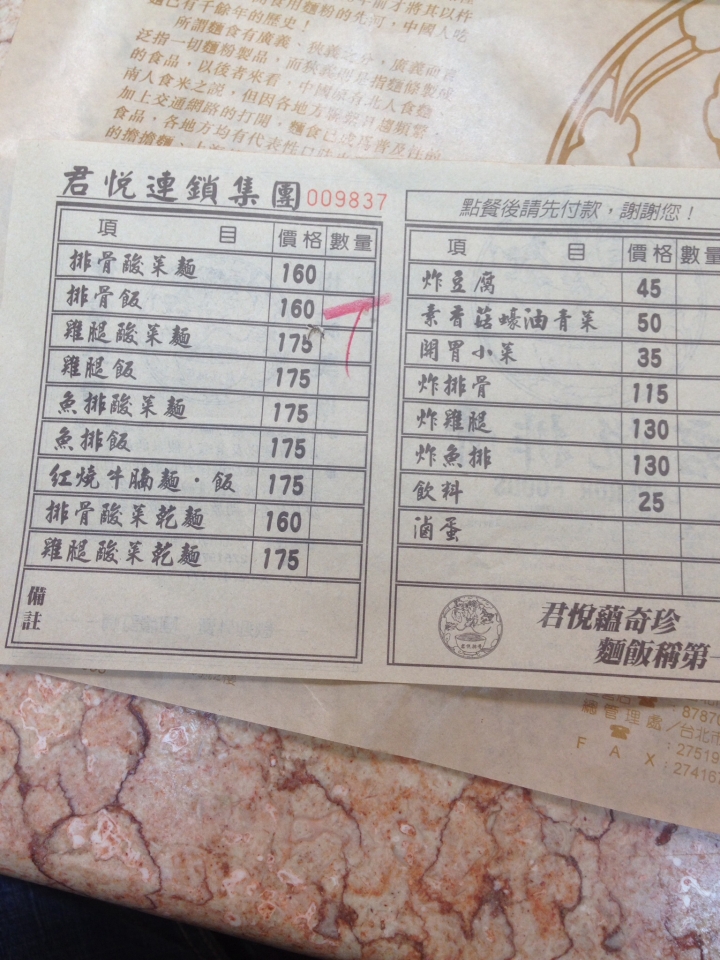 食用麵粉的先河，中國人吃
麵已有千餘年的歷史！
所謂麵食有廣義、狹義之分，廣義而言
泛指一切麵粉製品，而狹義則是指麵條製成
的食品，以後者來看，中國原有北人食麵
南人食米之說，但因各地方
加上交通網路的打開，麵食已成為普及性的
食品，各地方均有代表性
的擔擔麵、上海
君悅連鎖集團 009837
項 目 價格 數量
排骨酸菜麵 160
排骨飯 160
雞腿酸菜麵 175
雞腿飯 175
魚排酸菜麵 175
魚排飯 175
紅燒牛腩麵·飯 175
排骨酸菜乾麵 160
雞腿酸菜乾麵 175
備註
點餐後請先付款，謝謝您！
項 目 價格 數量
炸豆腐 45
素香菇蠔油青菜 50
開胃小菜 35
炸排骨 115
炸雞腿 130
炸魚排 130
飲料 25
滷蛋
君悅蘊奇珍
麵飯稱第一
總管理處／台北市
☎：27519
FAX：27416